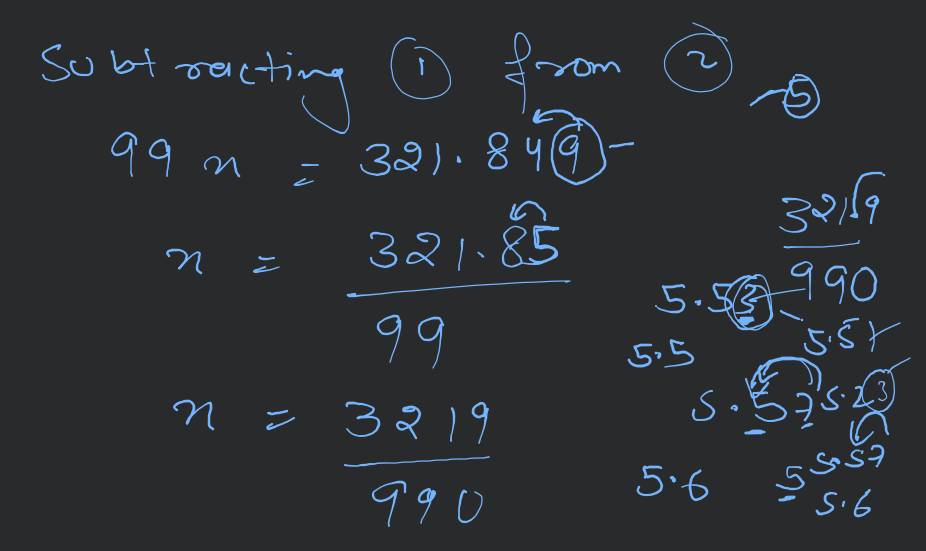 Subtracting ① from ②
5
99 x = 321.849
x = 321.85
99
x = 3219
990
3219
990
5.53
5.57
5.5
5.57
5.23
5.57
5.6
5
5.6